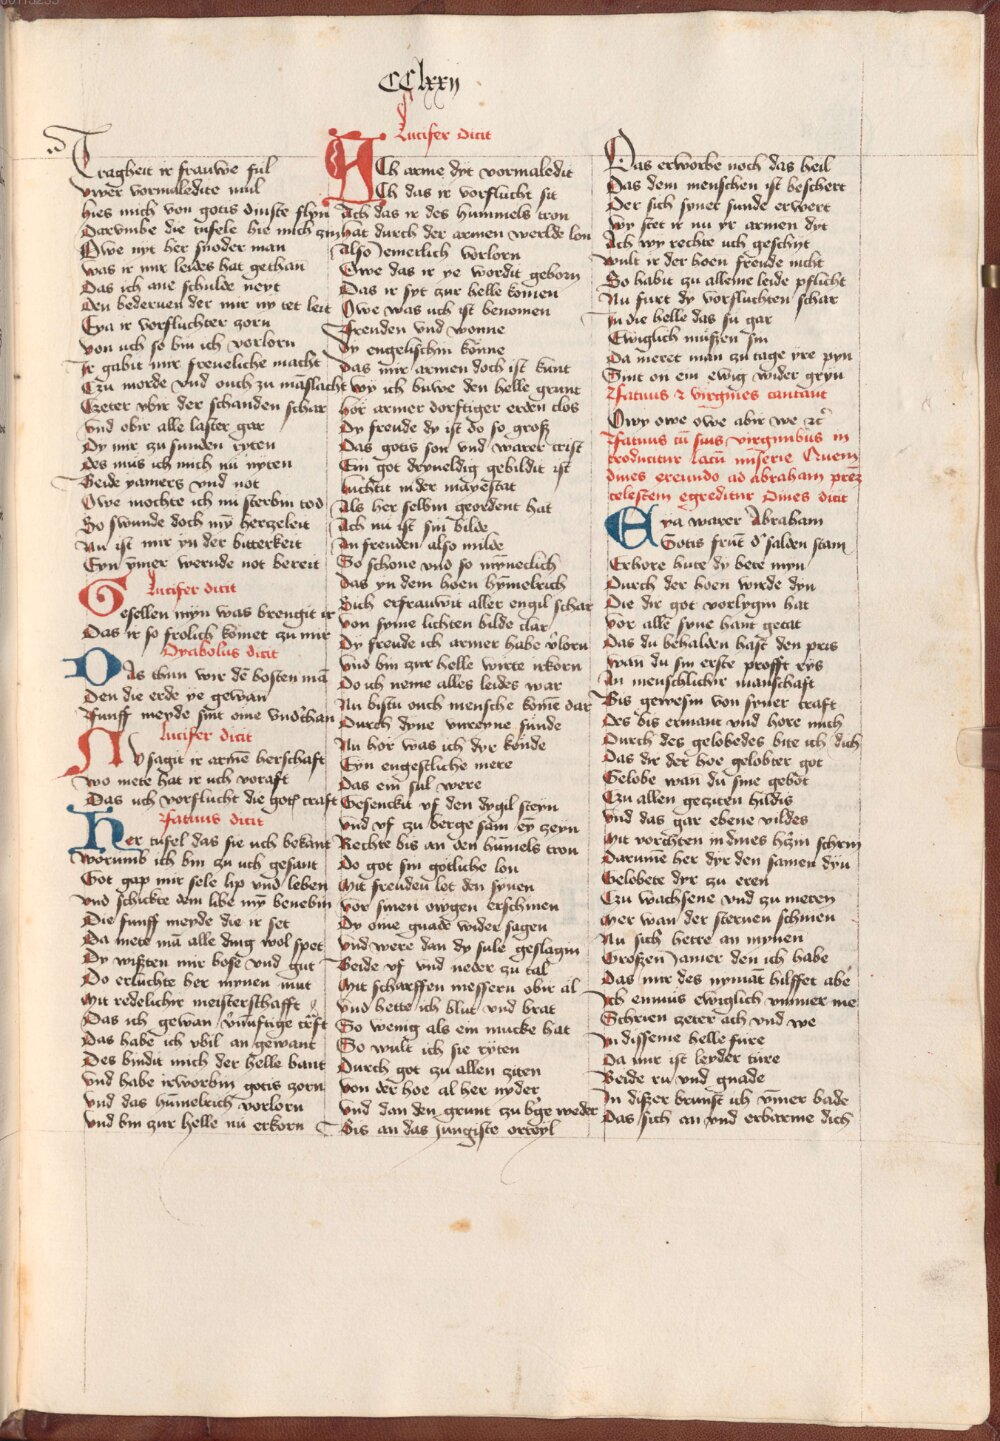 CClxxij
Tragheit ir frauwe ful
Vwer vormaledite mul
hies mich von gotis dinste flyn
Darumbe die tufele hie mich zin
Owe nyt her snoder man
was ir mir leides hat gethan
Das ich ane schulde neyt
Den bederuen der mir ny tet leit
Eya ir vorfluchter zorn
von uch so bin ich vorlorn
Ir gabit mir freueliche macht
Czu morde vnd ouch zu manslacht
Czeter vbir der schanden schar
vnd obir alle laster gar
Dy mir zu sunden ryten
Des mus ich mich nu nyten
Beide yamers vnd not
Owe mochte ich nu sterbin tod
So swunde doch my hertzeleit
Nu ist mir yn der bitterkeit
Eyn ymer werude not bereit
Lucifer dicit
Gesellen myn was brengit ir
Das ir so frolich komet zu mir
Dyabolus dicit
Das thun wir de bosten ma
Den die erde ye gewan
Funff meyde sint ome vndthan
Lucifer dicit
Nu sagit ir arme herschaft
wo mete hat ir uch voraft
Das uch vorflucht die got craft
Fatuus dicit
Her tufel das sie uch bekant
worumb ich bin zu uch gesant
Got gap mir sele lip vnd leben
vnd schickte dem libe my benebin
Die funff meyde die ir set
Da mete ma alle ding wol spet
Dy wisten mir bose vnd gut
Do erluchte her mynen mut
Mit redelichir meisterschafft
Das ich gewan vnuftige craft
Das habe ich vbil an gewant
Des bindit mich der helle bant
vnd habe irworbin gotis zorn
vnd das humelrich vorlorn
vnd bin zur helle nu erkorn
Lucifer dicit
Ach arme dyt vormaledit
Ach das ir vorflucht sit
Ach das ir des hummels tron
hat durch der armen werlde lon
Also iemerlich vorlorn
Owe das ir ye wordit geborn
Das ir syt zur helle komen
Owe was uch ist benomen
Freuden vnd wonne
Dy engelischin konne
Das mir armen doch ist kunt
wy ich buwe den helle grunt
hor armer dorftiger erden clos
Dy freude dy ist do so gros
Das gotis son vnd warer crist
Ein got dryueldig gebildit ist
luchtit in der mayestat
Als her selbin geordent hat
Ach nu ist sin bilde
An freuden also milde
So schone vnd so myneclich
Das yn dem hoen hymelrich
Sich erfrauwit aller engil schar
von syme lichten bilde clar
Dy freude ich armer habe vlorn
vnd bin zur helle wirte irkorn
Do ich neme alles leides war
Nu bistu ouch mensche kome dar
Durch dyne vnreyne sunde
Nu hor was ich dyr konde
Eyn engestliche mere
Das ein sul were
Gesenckit vf den dygil steyn
vnd vf zu berge sam ey zeyn
Rechte bis an den humels tron
Do got sin gotliche lon
Mit freuden let den synen
vor sinen owgen erschinen
Dy ome gnade wider sagen
vnd were dan dy sule geslagin
Beide vf vnd neder zu tal
Mit scharffen messern obir al
vnd hette ich blut vnd brat
So wenig als ein mucke hat
So wult ich sie ryten
Durch got zu allen ziten
von der hoe al her nyder
vnd dan den grunt zu bge weder
Bis an das jungiste orteyl
Das erworbe noch das heil
Das dem menschen ist beschert
Der sich syner sunde erwert
wy stet ir nu yr armen dyt
Ach wy rechte uch geschyt
wult ir der hoen freude nicht
So habit zu alleme leide pflicht
Nu furt dy vorfluchten schar
In die helle das su gar
Ewiglich mussen sin
Da meret man zu tage yre pyn
Sint on ein ewig wider gryn
Fatuus z virgines cantant
Owy owe owe abir we zc
Fatuus cu suis virginibus in
troducitur lacu miserie Quem
diues exeundo ad abraham prez
celestem egreditur Diues dicit
Eya warer Abraham
Gotis frut d salden stam
Erhore hute dy bete myn
Durch der hoen wirde dyn
Die dir got vorlygin hat
vor alle syne hant getat
Das du behalden hast den pris
wan du sin erste profft rys
An menschlichir manschaft
Bis gewesin von syner craft
Des bis ermant vnd hore mich
Durch des gelobedes bite ich dich
Das dir der hoe gelobter got
Gelobe wan du sine gebot
Czu allen geziten hildis
vnd das gar ebene vildes
Mit vorchten in dines hzin schrin
Darume her dyr den samen dyn
Gelobete dyr zu eren
Czu wachsene vnd zu meren
Mer wan der sternen schinen
Nu sich herre an mynen
Grossen iamer den ich habe
Das mir des nymat hilffet abe
Ich enmus ewiglich ymmer me
Schrien zeter ach vnd we
In disseme helle fure
Da mir ist leyder ture
Beide ru vnd gnade
In diszer brunst ich ymer bade
Das sich an vnd erbarme dich